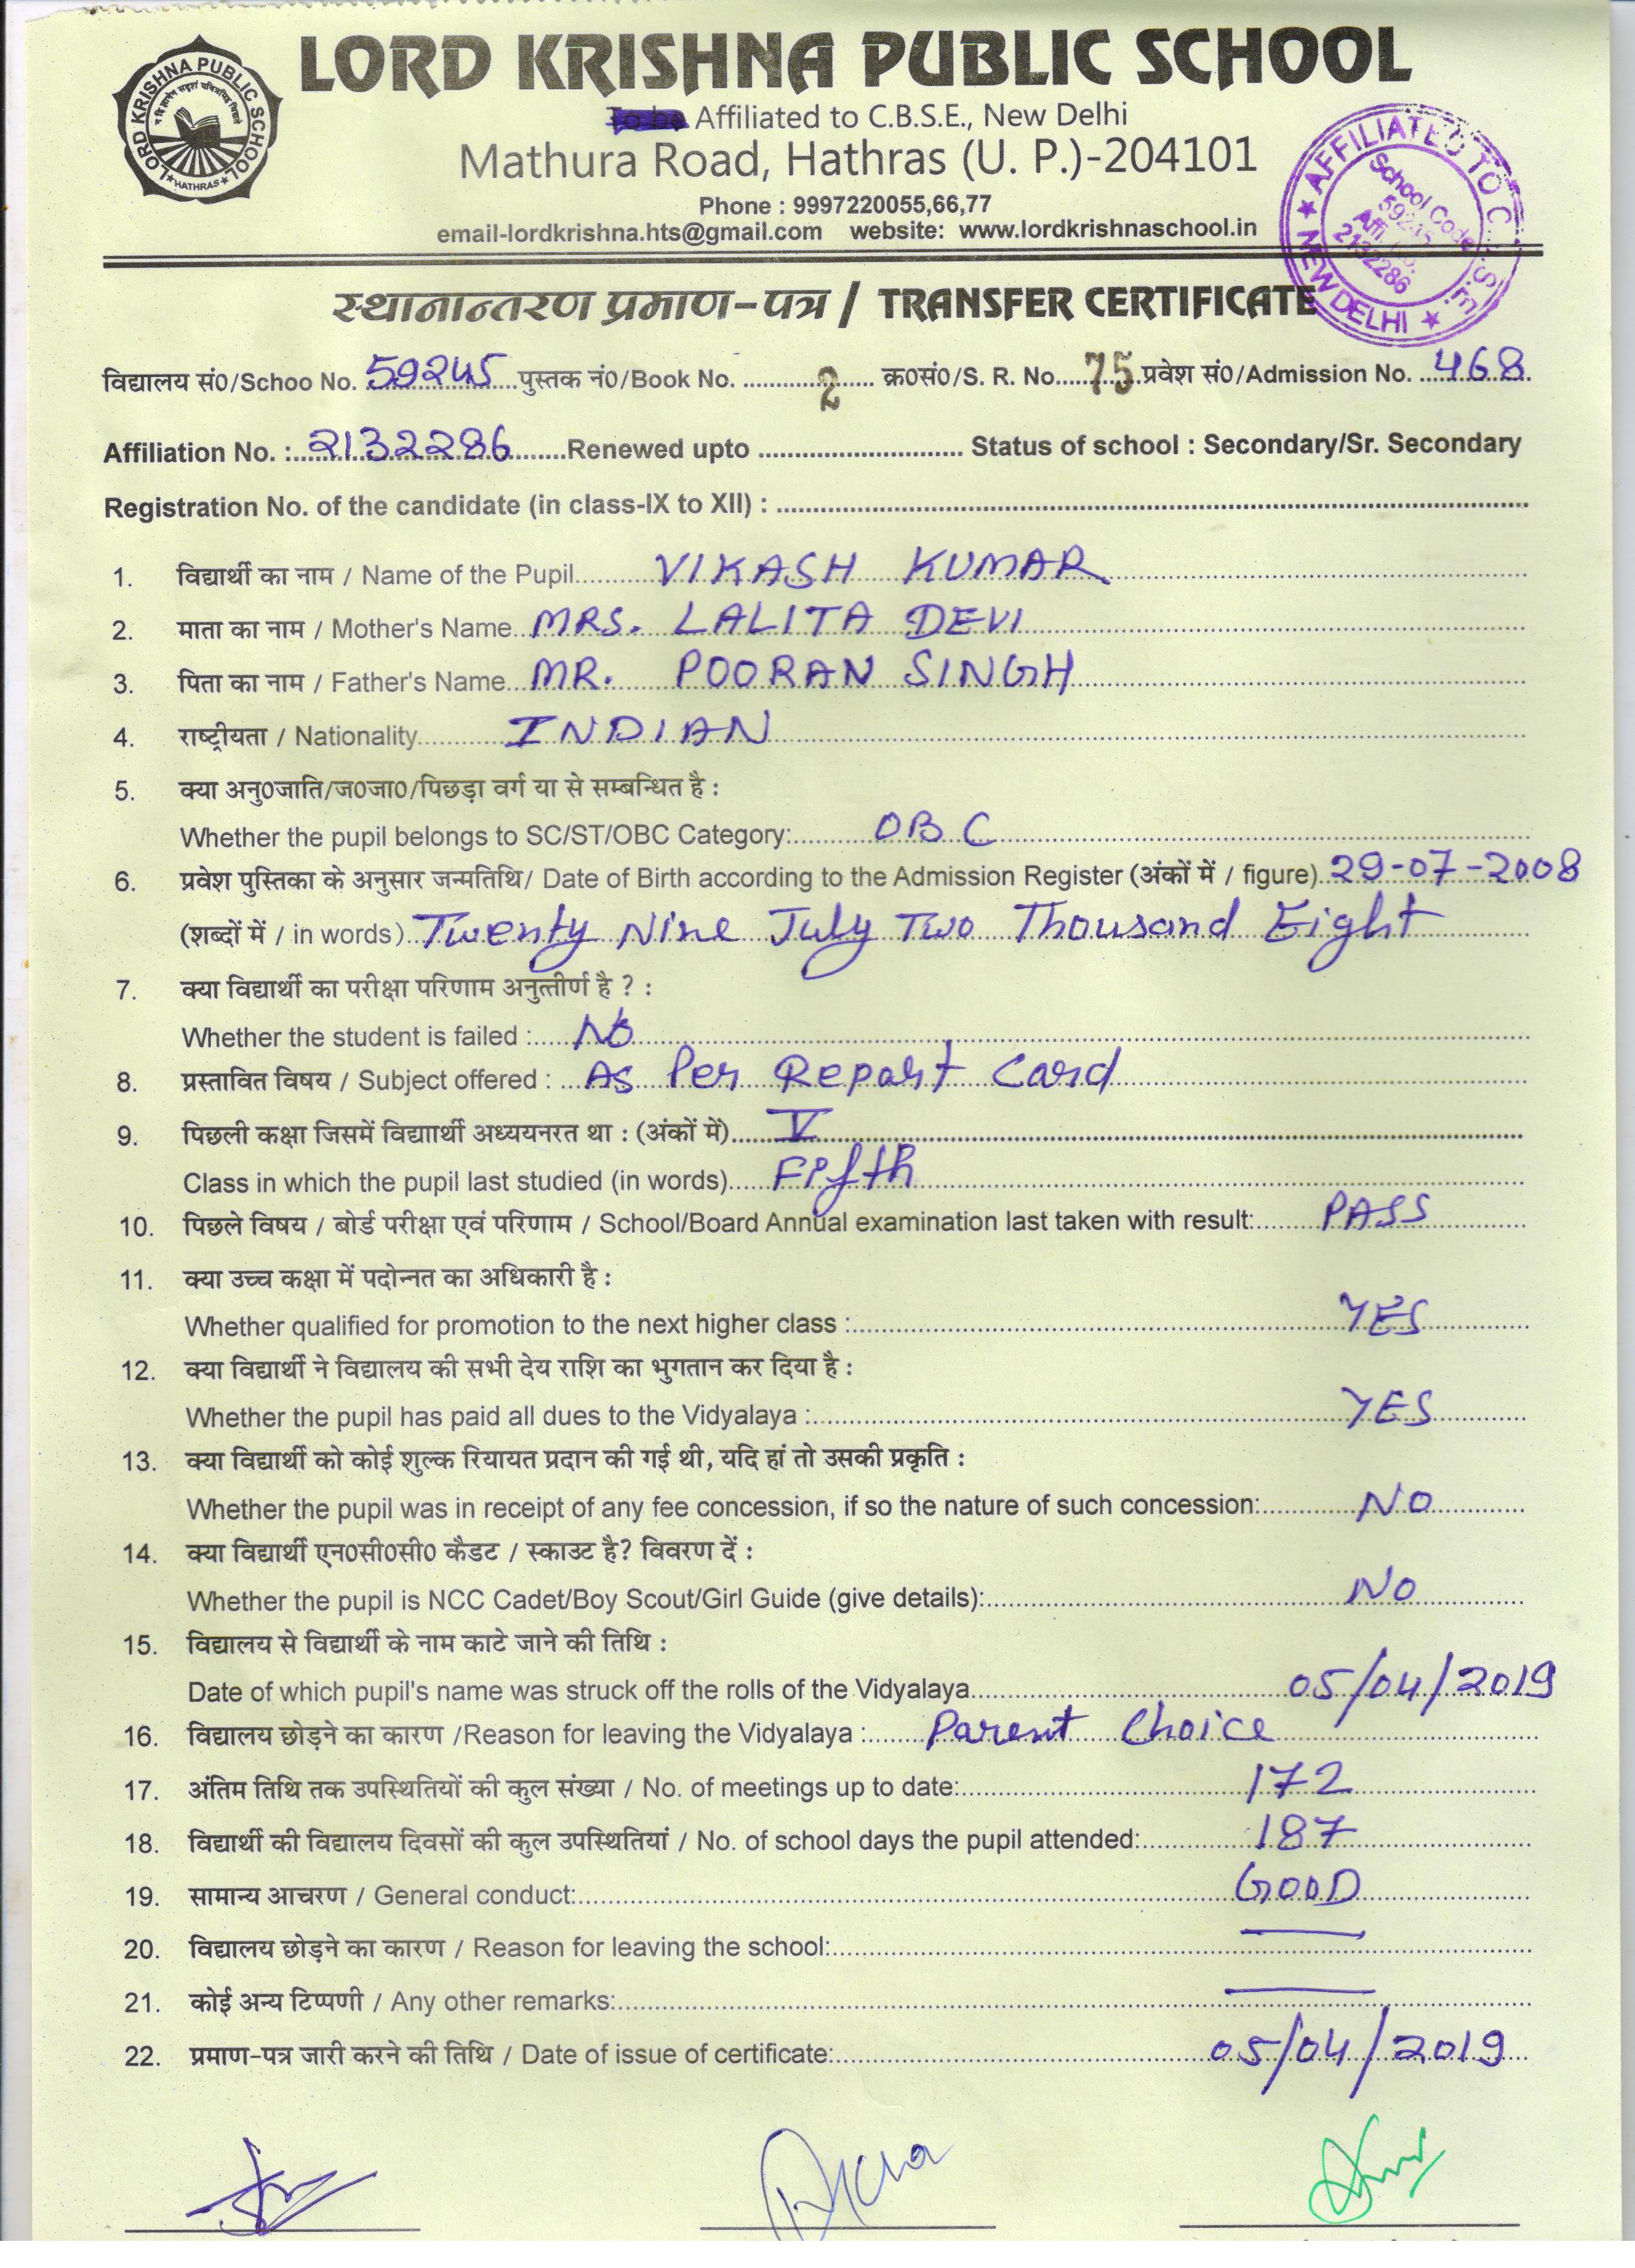 LORD KRISHNA PUBLIC SCHOOL
LORD KRISHNA PUBLIC SCHOOL
★ HATHRAS ★
Affiliated to C.B.S.E., New Delhi
Mathura Road, Hathras (U. P.)-204101
Phone : 9997220055,66,77
email-lordkrishna.hts@gmail.com website: www.lordkrishnaschool.in
★ AFFILIATED TO C.B.S.E. ★ NEW DELHI
School Code
Affi. No.
2132286
स्थानान्तरण प्रमाण-पत्र / TRANSFER CERTIFICATE
विद्यालय सं0/Schoo No. 59245 पुस्तक नं0/Book No. 2 क्र0सं0/S. R. No. 75 प्रवेश सं0/Admission No. 468
Affiliation No. : 2132286 Renewed upto Status of school : Secondary/Sr. Secondary
Registration No. of the candidate (in class-IX to XII) :
1. विद्यार्थी का नाम / Name of the Pupil VIKASH KUMAR
2. माता का नाम / Mother's Name MRS. LALITA DEVI
3. पिता का नाम / Father's Name MR. POORAN SINGH
4. राष्ट्रीयता / Nationality INDIAN
5. क्या अनु0जाति/ज0जा0/पिछड़ा वर्ग या से सम्बन्धित है :
Whether the pupil belongs to SC/ST/OBC Category: OBC
6. प्रवेश पुस्तिका के अनुसार जन्मतिथि/ Date of Birth according to the Admission Register (अंकों में / figure) 29-07-2008
(शब्दों में / in words) Twenty Nine July Two Thousand Eight
7. क्या विद्यार्थी का परीक्षा परिणाम अनुत्तीर्ण है ? :
Whether the student is failed : No
8. प्रस्तावित विषय / Subject offered : As Per Report Card
9. पिछली कक्षा जिसमें विद्याार्थी अध्ययनरत था : (अंकों में) V
Class in which the pupil last studied (in words) Fifth
10. पिछले विषय / बोर्ड परीक्षा एवं परिणाम / School/Board Annual examination last taken with result: PASS
11. क्या उच्च कक्षा में पदोन्नत का अधिकारी है :
Whether qualified for promotion to the next higher class : YES
12. क्या विद्यार्थी ने विद्यालय की सभी देय राशि का भुगतान कर दिया है :
Whether the pupil has paid all dues to the Vidyalaya : YES
13. क्या विद्यार्थी को कोई शुल्क रियायत प्रदान की गई थी, यदि हां तो उसकी प्रकृति :
Whether the pupil was in receipt of any fee concession, if so the nature of such concession: NO
14. क्या विद्यार्थी एन0सी0सी0 कैडट / स्काउट है? विवरण दें :
Whether the pupil is NCC Cadet/Boy Scout/Girl Guide (give details): NO
15. विद्यालय से विद्यार्थी के नाम काटे जाने की तिथि :
Date of which pupil's name was struck off the rolls of the Vidyalaya 05/04/2019
16. विद्यालय छोड़ने का कारण /Reason for leaving the Vidyalaya : Parent Choice
17. अंतिम तिथि तक उपस्थितियों की कुल संख्या / No. of meetings up to date: 172
18. विद्यार्थी की विद्यालय दिवसों की कुल उपस्थितियां / No. of school days the pupil attended: 187
19. सामान्य आचरण / General conduct: GOOD
20. विद्यालय छोड़ने का कारण / Reason for leaving the school:
21. कोई अन्य टिप्पणी / Any other remarks:
22. प्रमाण-पत्र जारी करने की तिथि / Date of issue of certificate: 05/04/2019